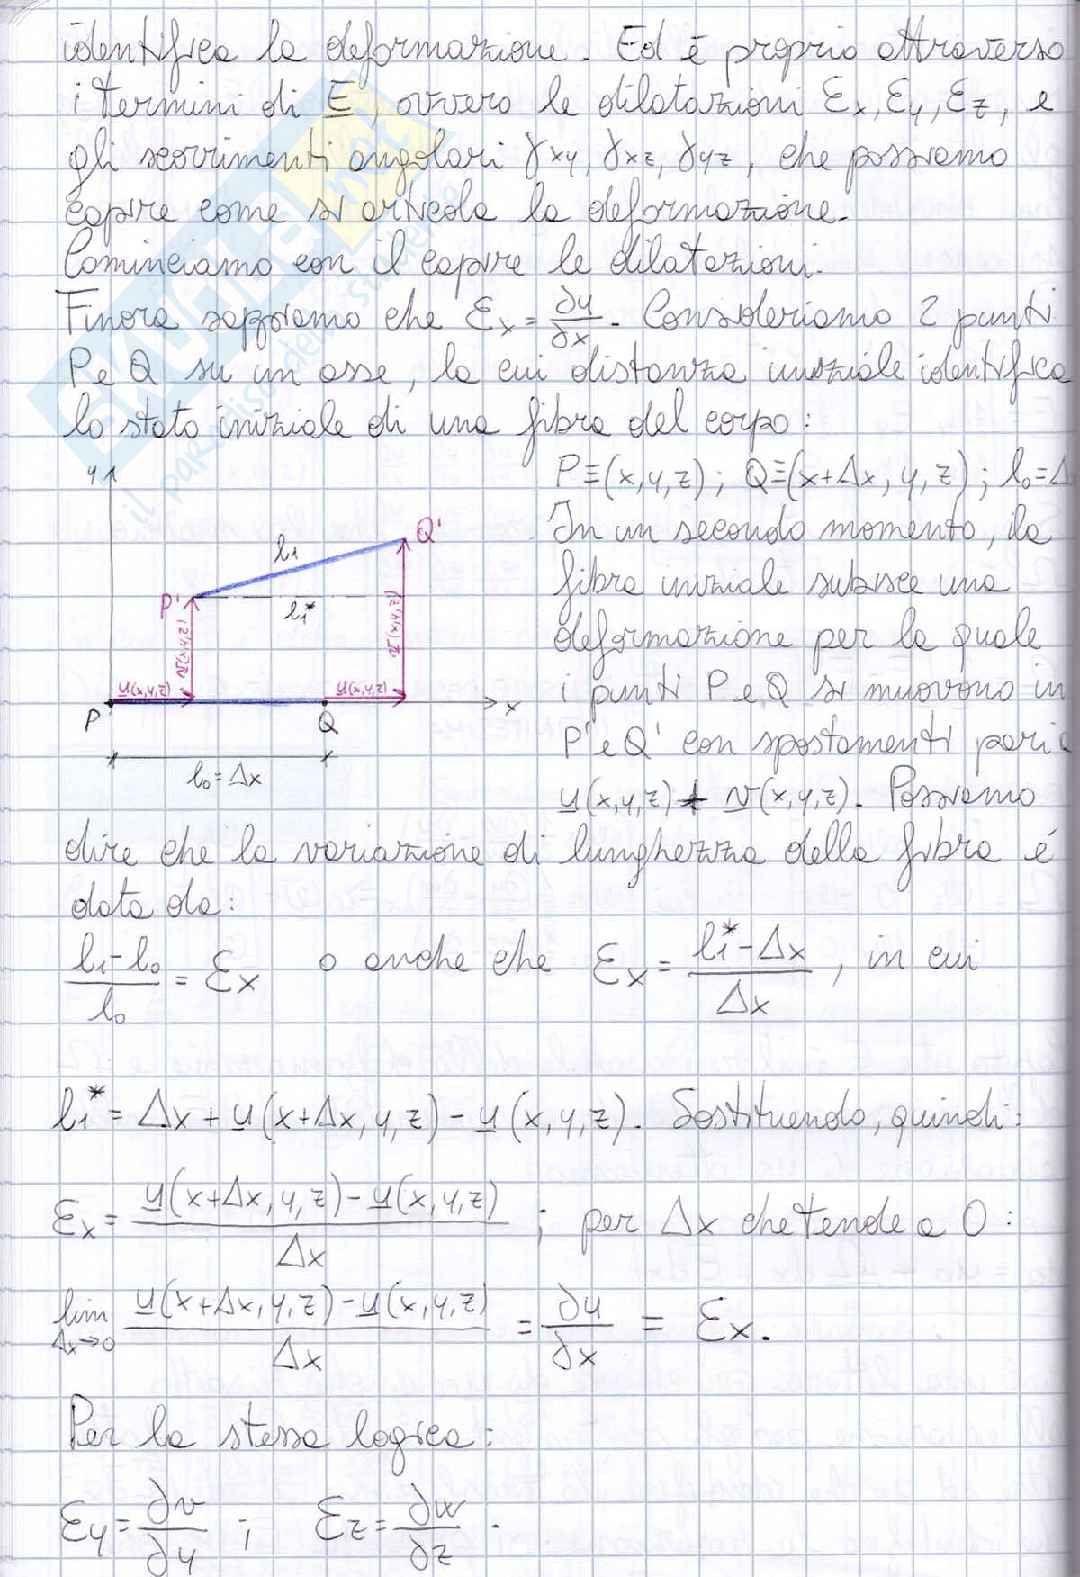 identifica la deformazione. Ed è proprio attraverso
i termini di E, ovvero le dilatazioni εx, εy, εz, e
gli scorrimenti angolari γxy, γxz, γyz, che possiamo
capire come si articola la deformazione.
Cominciamo con il capire le dilatazioni.
Finora sappiamo che εx = ∂u/∂x. Consideriamo 2 punti
P e Q su un asse, la cui distanza iniziale identifica
lo stato iniziale di una fibra del corpo:
P≡(x,y,z); Q≡(x+Δx, y, z); l0=Δ
In un secondo momento, la
fibra iniziale subisce una
deformazione per la quale
i punti P e Q si muovono in
P' e Q' con spostamenti pari a
u(x,y,z) + v(x,y,z). Possiamo
y
l1
Q'
P'
l1*
v(x,y,z)
v(x,y,z)
u(x,y,z)
u(x,y,z)
P
Q
x
l0=Δx
dire che la variazione di lunghezza della fibra è
data da:
(l1-l0)/l0 = εx o anche che εx = (l1*-Δx)/Δx, in cui
l1* = Δx + u(x+Δx, y, z) - u(x, y, z). Sostituendo, quindi:
εx = (u(x+Δx, y, z) - u(x, y, z))/Δx ; per Δx che tende a 0:
lim Δx→0 (u(x+Δx, y, z) - u(x, y, z))/Δx = ∂u/∂x = εx.
Per la stessa logica:
εy = ∂v/∂y ; εz = ∂w/∂z .
SKUOLA.net
il paradiso dello studente